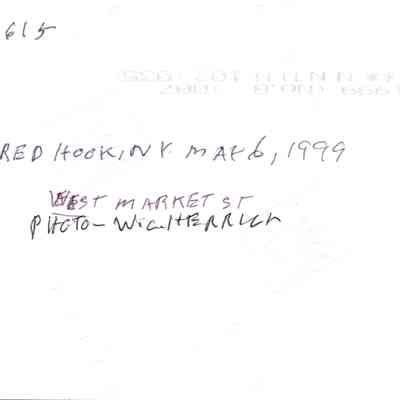 615
RED HOOK, NY. MAY 6, 1999
WEST MARKET ST
PHOTO - Wm. HERRICK